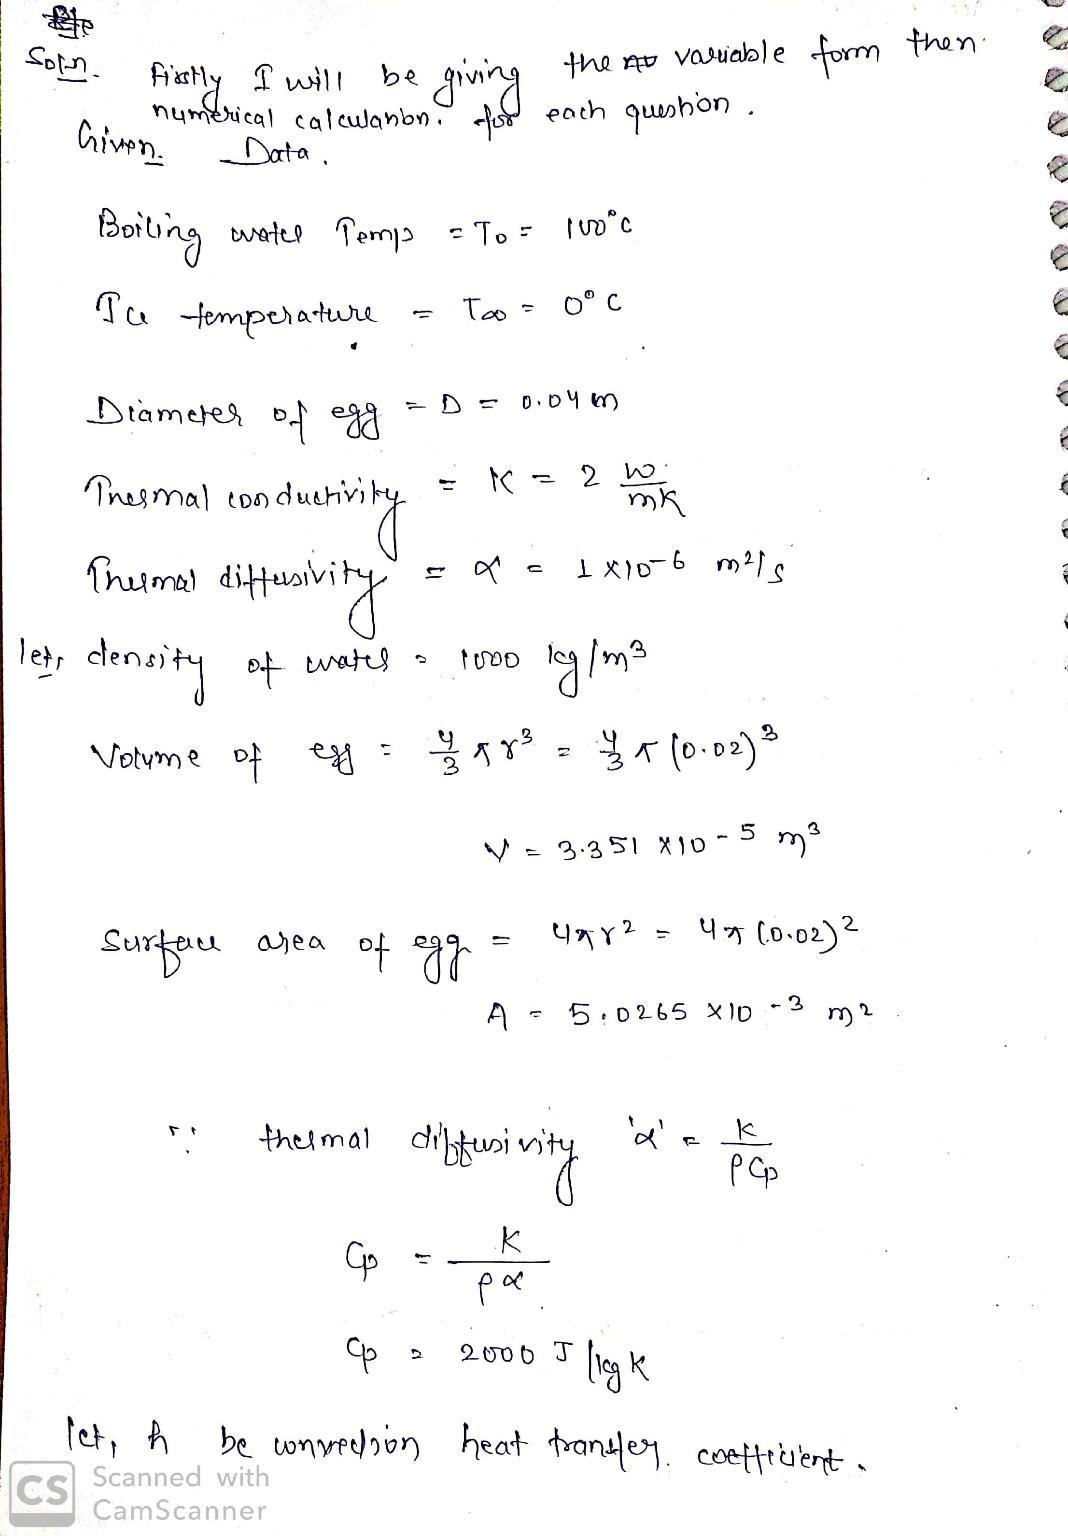 Soln. Firstly I will be giving the variable form then
numerical calculation. for each question.
Given Data.
Boiling water Temp = To = 100°C
Ice temperature = T∞ = 0°C
Diameter of egg = D = 0.04 m
Thermal conductivity = K = 2 W/mK
Thermal diffusivity = α = 1×10-6 m2/s
let, density of water = 1000 kg/m3
Volume of egg = 4/3 π r3 = 4/3 π (0.02)3
V = 3.351 ×10-5 m3
Surface area of egg = 4πr2 = 4π (0.02)2
A = 5.0265 ×10-3 m2
∵ thermal diffusivity 'α' = K/ρCp
Cp = K/ρα
Cp = 2000 J/kg K
let, h be convection heat transfer coefficient.
CS Scanned with
CamScanner